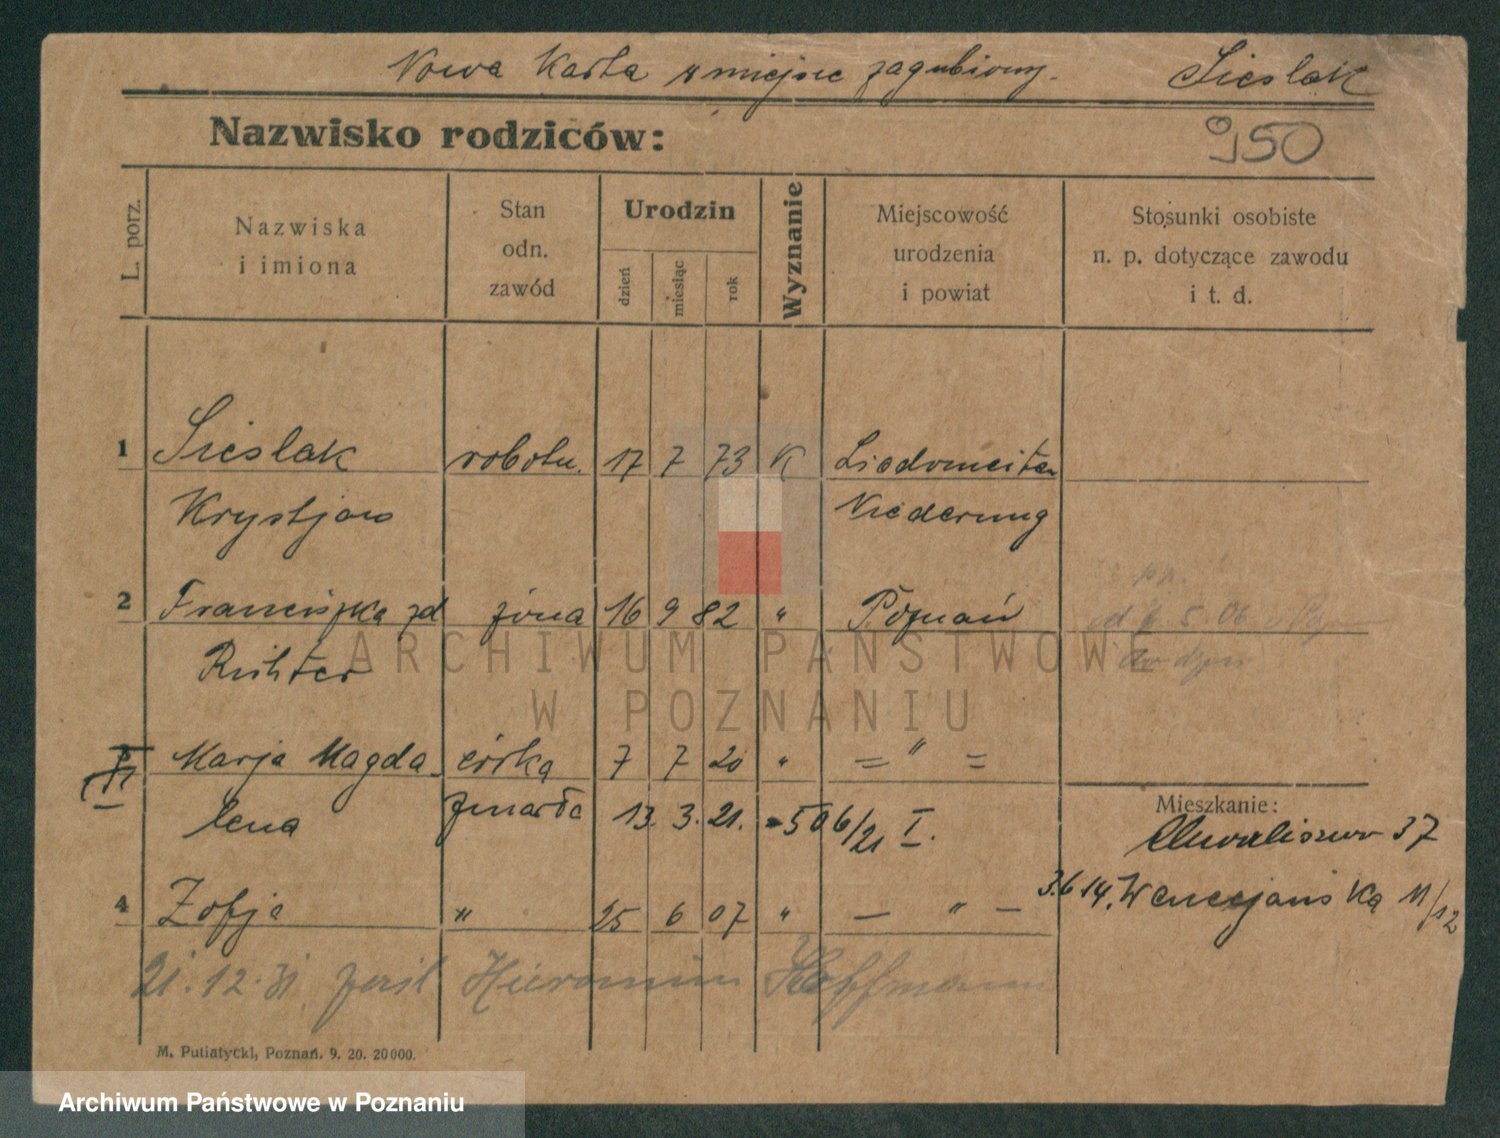 Nowa Karta w miejsce zagubionej. Sieslak
950
Nazwisko rodziców:
L. porz.
Nazwiska
i imiona
Stan
odn.
zawód
Urodzin
dzień
miesiąc
rok
Wyznanie
Miejscowość
urodzenia
i powiat
Stosunki osobiste
n. p. dotyczące zawodu
i t. d.
1 Sieslak robotn. 17 7 73 K
Krystjan Niederung
2 Franciszka zd żona 16 9 82 " Poznań
Richter
Marja Magda- córka 7 7 20 " = " =
lena zmarła 13. 3. 21. 506/21 I.
Mieszkanie:
Chwaliszewo 37
3.6 14. Wenecjańska 11/12
4 Zofja " 25 6 07 " — " —
21.12.31 Hieronim Hoffmann
M. Putiatycki, Poznań. 9. 20. 20000.
ARCHIWUM PAŃSTWOWE
W POZNANIU
Archiwum Państwowe w Poznaniu